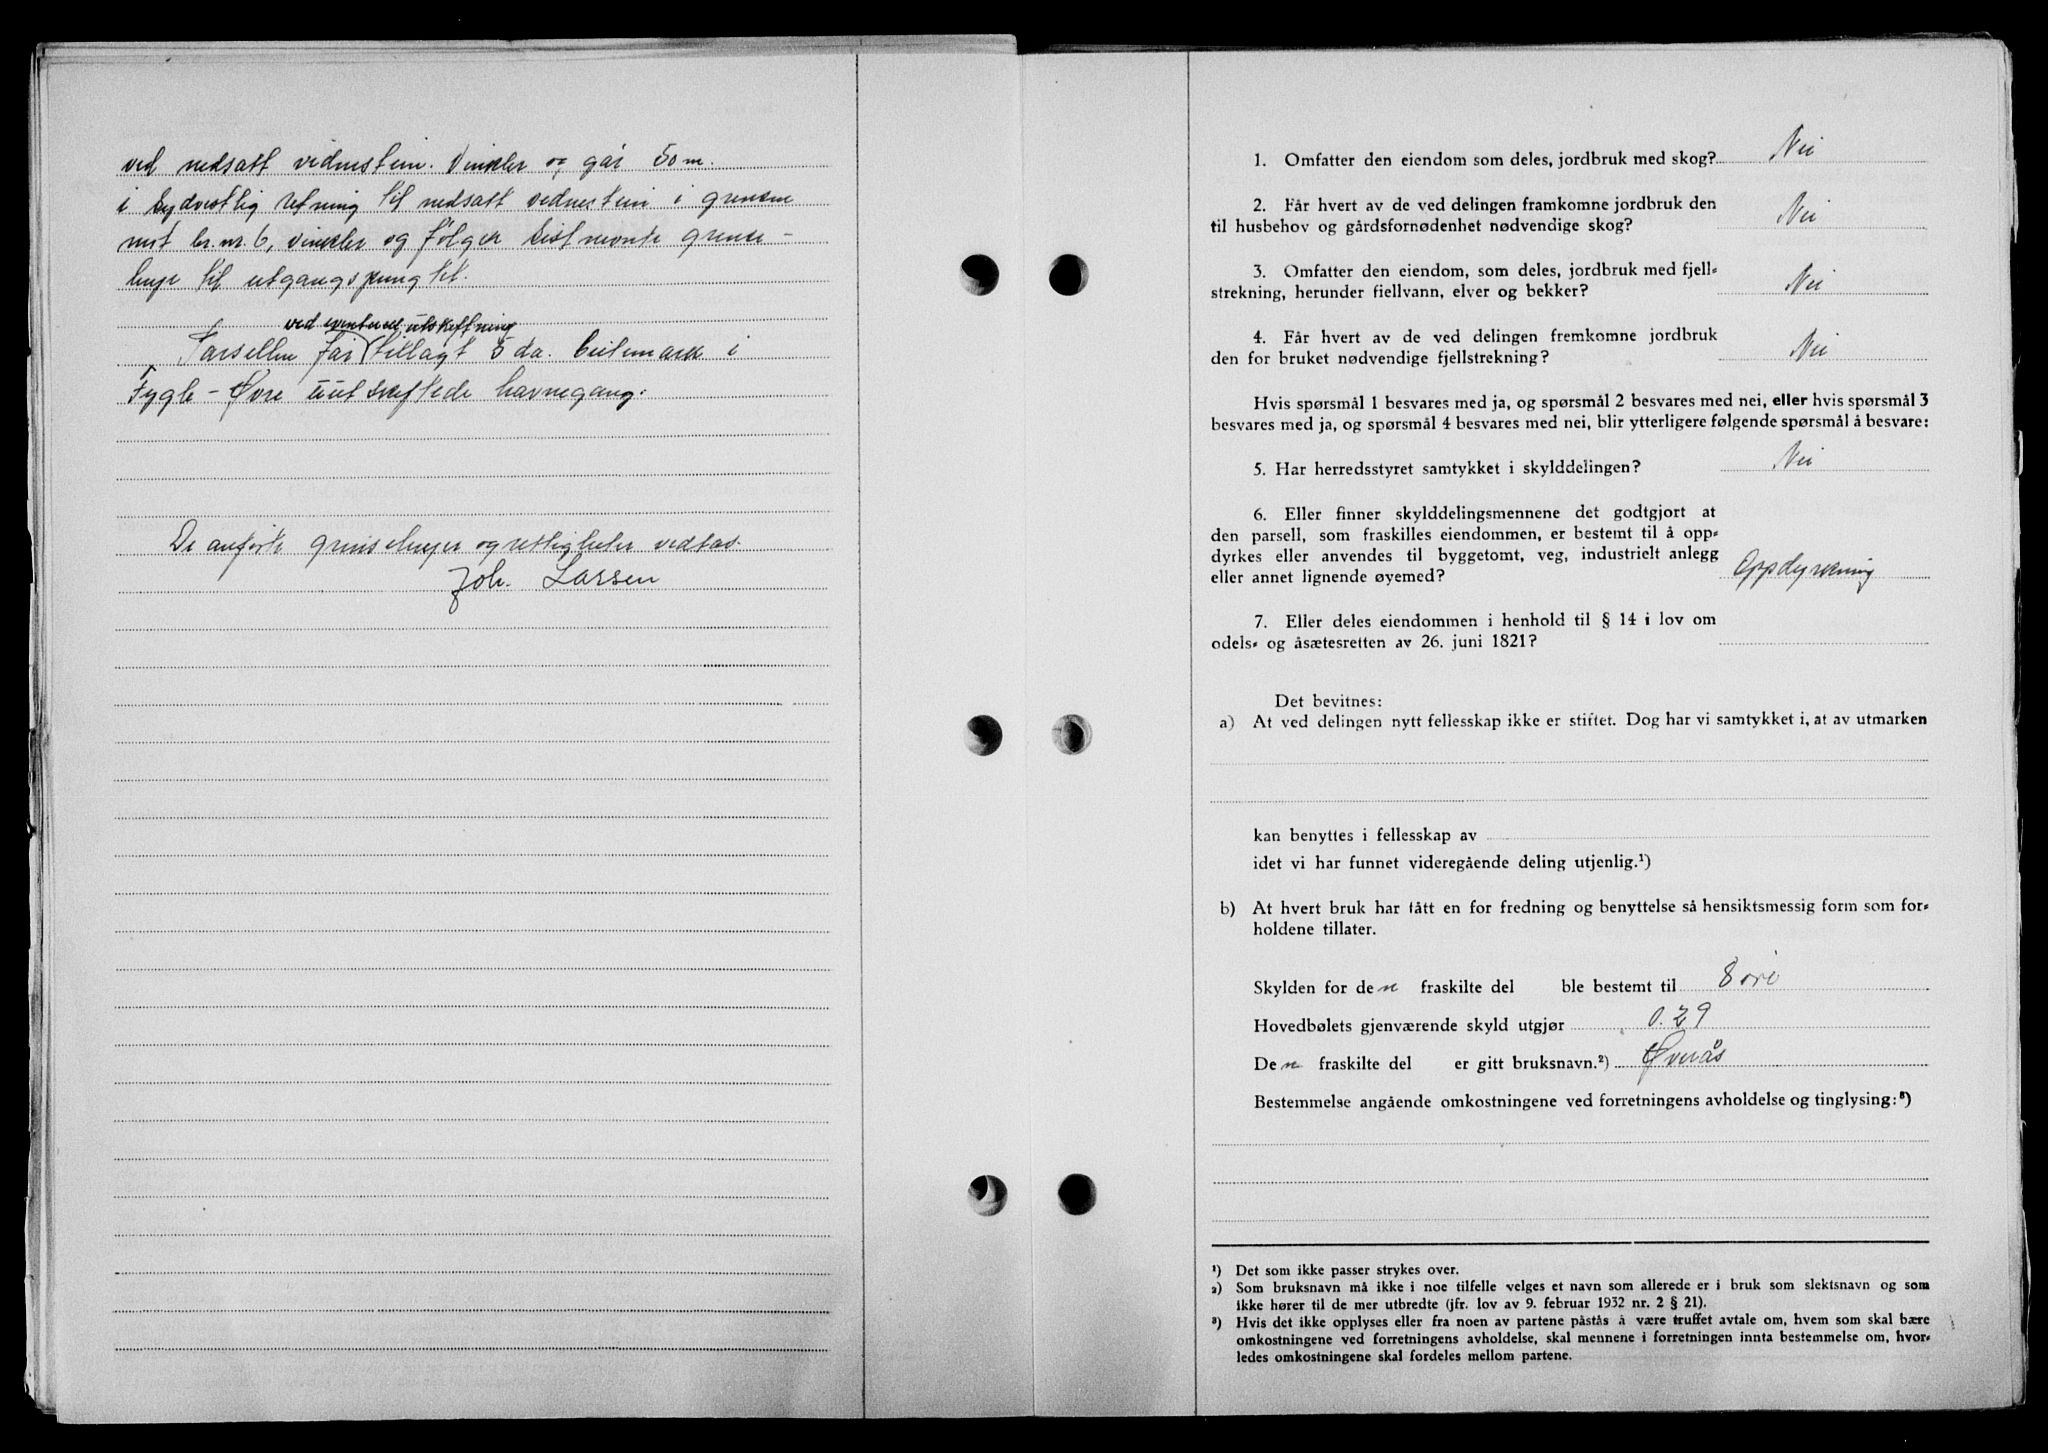 ved nedsatt vidnestein. Vinkler og går 50 m.
i sydvestlig retning til nedsatt vednestein i grensen
mot br.nr. 6, vinkler og følger sistnevnte grense-
linje til utgangspungtet.
ved eventuell utskiftning
Parsellen får tillagt 5 da. beitemark i
Fygle - Øvre uutskiftede havnegang.
De anførte grenselinjer og rettigheter vedtas
Joh. Larsen
1. Omfatter den eiendom som deles, jordbruk med skog? Nei
2. Får hvert av de ved delingen framkomne jordbruk den
til husbehov og gårdsfornødenhet nødvendige skog? Nei
3. Omfatter den eiendom, som deles, jordbruk med fjell-
strekning, herunder fjellvann, elver og bekker? Nei
4. Får hvert av de ved delingen fremkomne jordbruk
den for bruket nødvendige fjellstrekning? Nei
Hvis spørsmål 1 besvares med ja, og spørsmål 2 besvares med nei, eller hvis spørsmål 3
besvares med ja, og spørsmål 4 besvares med nei, blir ytterligere følgende spørsmål å besvare:
5. Har herredsstyret samtykket i skylddelingen? Nei
6. Eller finner skylddelingsmennene det godtgjort at
den parsell, som fraskilles eiendommen, er bestemt til å opp-
dyrkes eller anvendes til byggetomt, veg, industrielt anlegg
eller annet lignende øyemed? Oppdyrkning
7. Eller deles eiendommen i henhold til § 14 i lov om
odels- og åsætesretten av 26. juni 1821?
Det bevitnes:
a) At ved delingen nytt fellesskap ikke er stiftet. Dog har vi samtykket i, at av utmarken
kan benyttes i fellesskap av
idet vi har funnet videregående deling utjenlig.¹)
b) At hvert bruk har fått en for fredning og benyttelse så hensiktsmessig form som for-
holdene tillater.
Skylden for den fraskilte del ble bestemt til 8 øre
Hovedbølets gjenværende skyld utgjør 0.29
Den fraskilte del er gitt bruksnavn.²) Øverås
Bestemmelse angående omkostningene ved forretningens avholdelse og tinglysing:³)
¹) Det som ikke passer strykes over.
²) Som bruksnavn må ikke i noe tilfelle velges et navn som allerede er i bruk som slektsnavn og som
ikke hører til de mer utbredte (jfr. lov av 9. februar 1932 nr. 2 § 21).
³) Hvis det ikke opplyses eller fra noen av partene påstås å være truffet avtale om, hvem som skal bære
omkostningene ved forretningens avholdelse, skal mennene i forretningen innta bestemmelse om, hvor-
ledes omkostningene skal fordeles mellom partene.